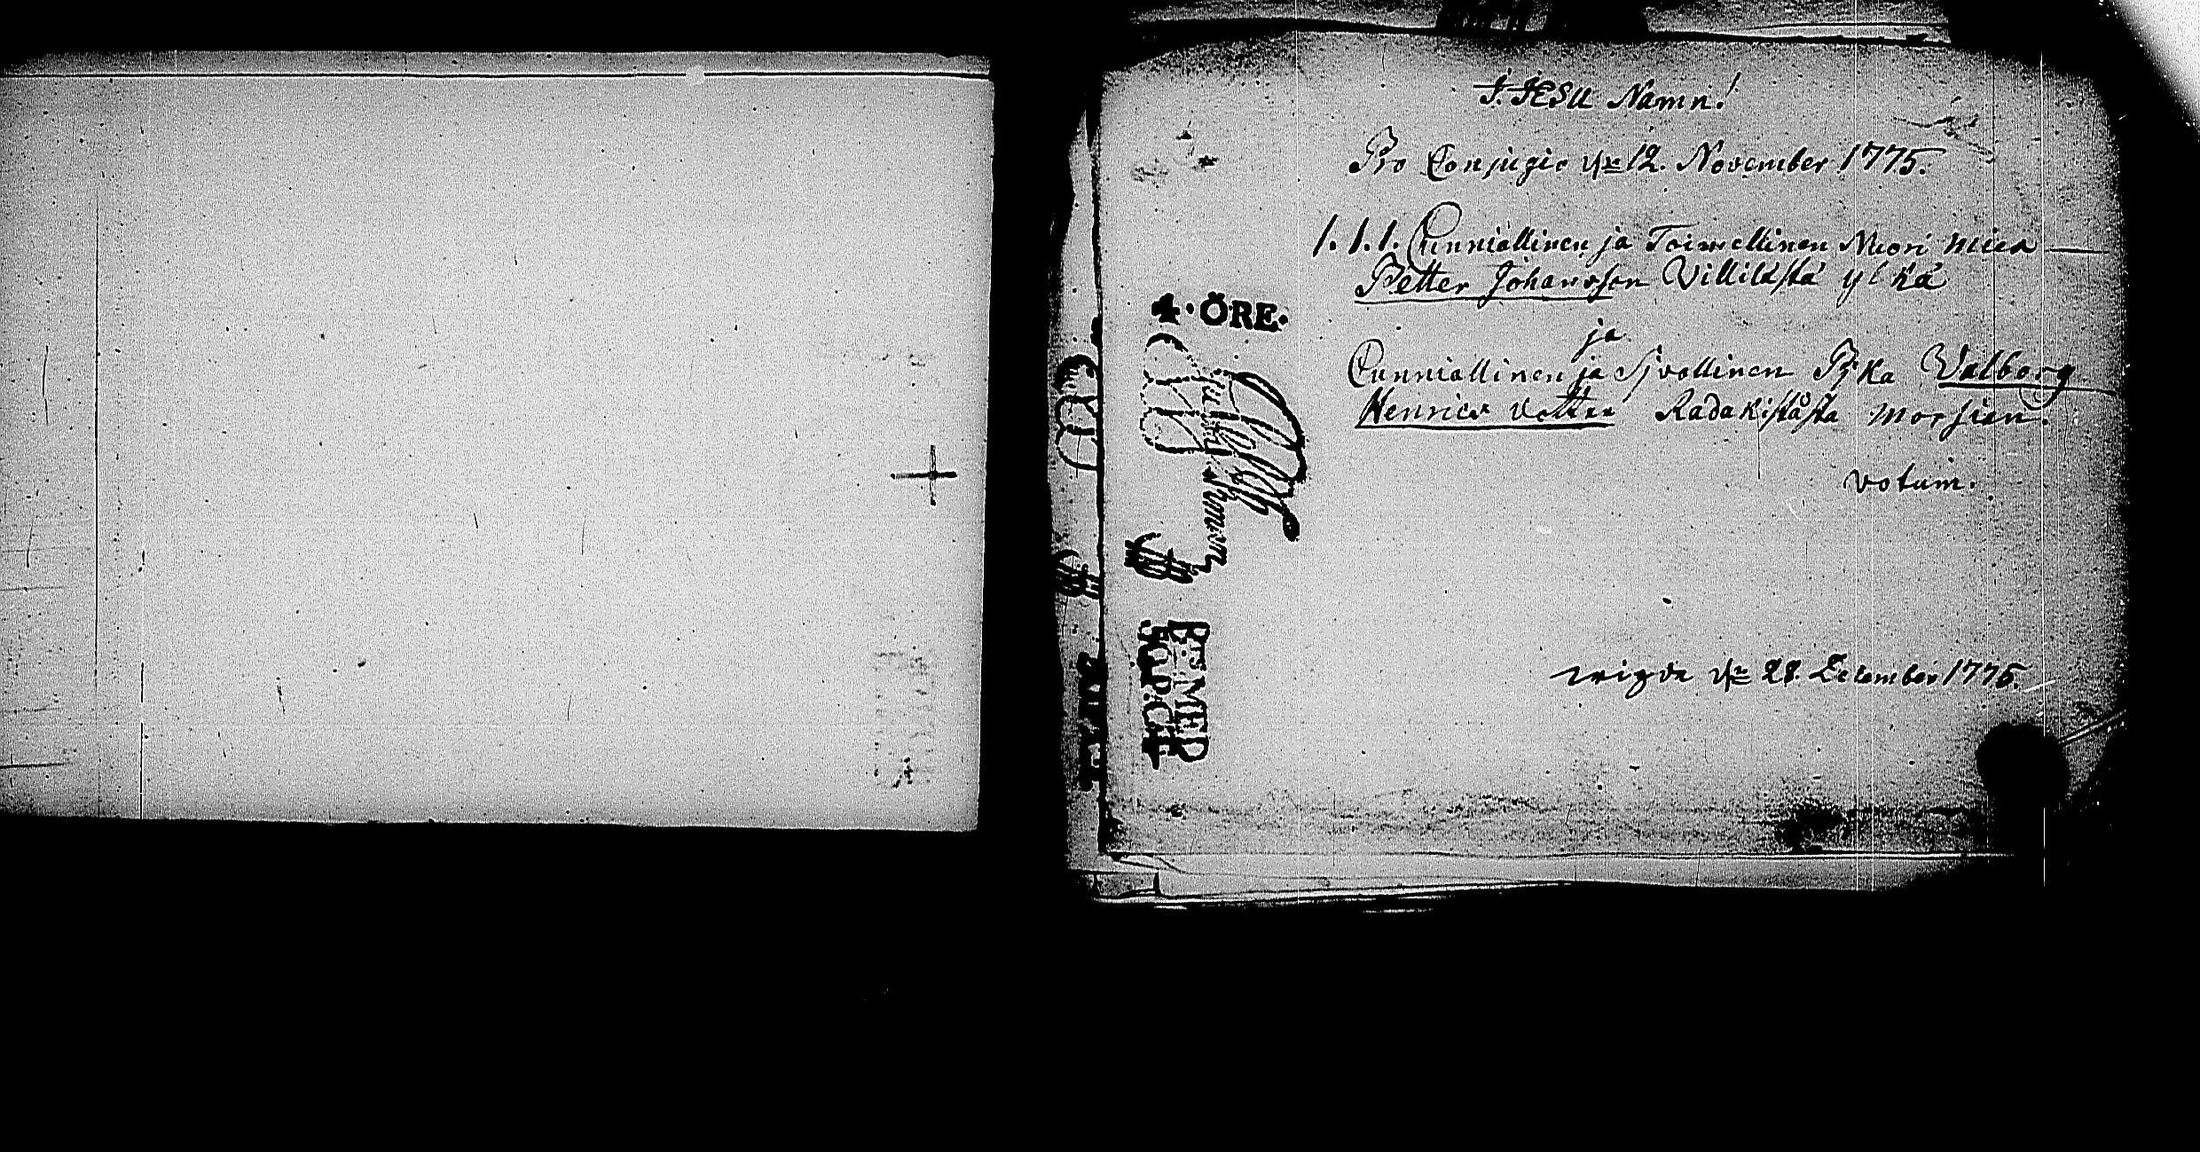 I. JESU Namn!
Pro Conjugio d: 12. November 1775.
1. 1. 1. Cunniallinen ja Toimellinen Nuori mies
Petter Johansson Villilästä ylkä
ja
Cunniallinen ja Sjvollinen Pjka Walborg
Henrics dotter Radakiståsta morsian.
votum.
wigde d: 28. December 1775.
4·ÖRE·